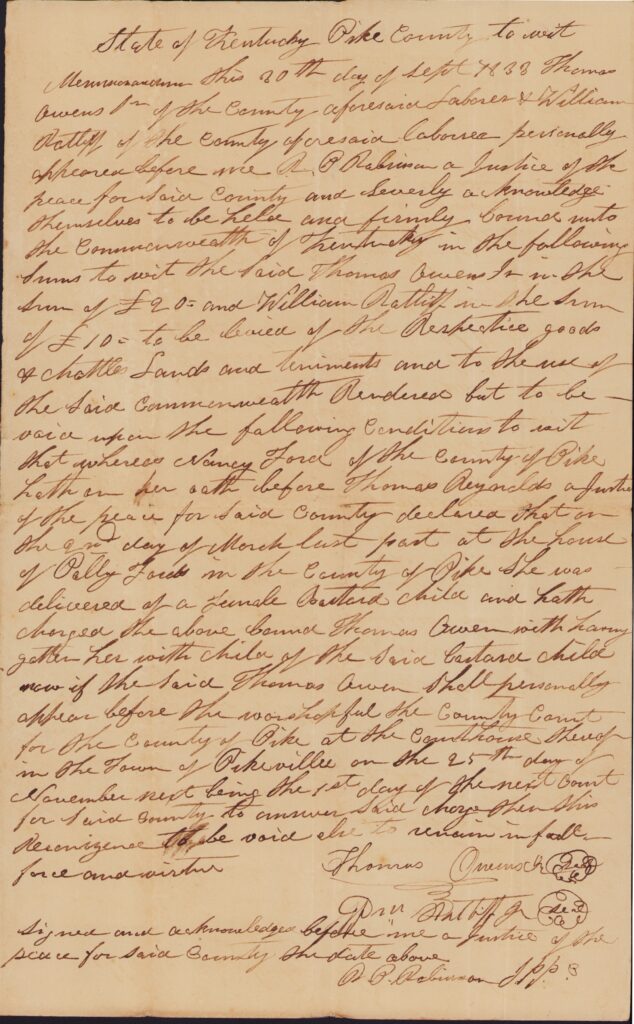 State of Kentucky Pike County to wit
Memmorandum this 30th day of Sept 1838 Thomas
Owens Jr of the County aforesaid Laborer & William
Ratliff of the County aforesaid laborer personally
appeared before me R P Robinson a Justice of the
peace for Said County and Severly acknowledge
themselves to be held and firmly bound unto
the Commonwealth of Kentucky in the following
Sums to wit the Said Thomas Owens Jr in the
Sum of £20= and William Ratliff in the Sum
of £10= to be leved of the Respective goods
& chattles Lands and teniments and to the use of
the Said Commonwealth Rendered but to be
void upon the following Conditions to wit
that whereas Nancy Ford of the County of Pike
hath on her oath before Thomas Reynolds a Justice
of the peace for Said County declared that on
the 2nd day of March last past at the house
of Polly Fords in the County of Pike She was
delivered of a Female Bastard child and hath
charged the above bound Thomas Owen with having
gotten her with child of the Said bastard child
now if the Said Thomas Owen Shall personally
appear before the worshopful the County Court
for the County of Pike at the Courthouse thereof
in the Town of Pikeville on the 25th day of
November next being the 1st day of the next Court
for Said County to answer Said charge then this
Reconizence to be void else to remain in full
force and virtue
Thomas Owens Jr Seal
Wm Ratliff Jr Seal
Signed and acknowledged before me a Justice of the
peace for Said County the date above
R P. Robinson J P P C